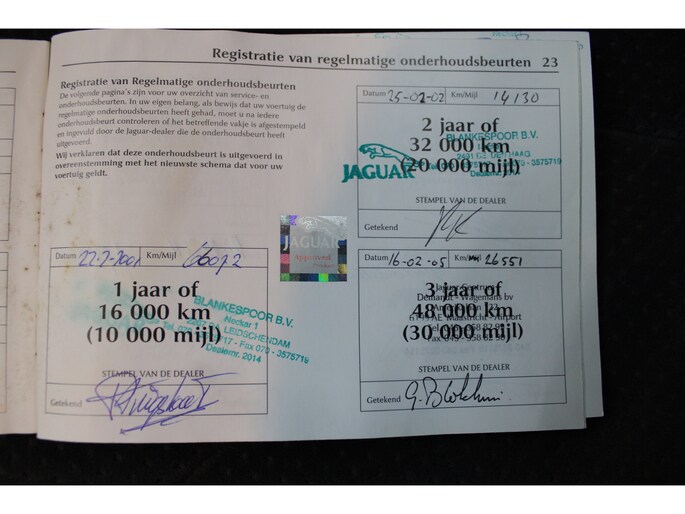 Registratie van regelmatige onderhoudsbeurten 23
Registratie van Regelmatige onderhoudsbeurten
De volgende pagina's zijn voor uw overzicht van service- en
onderhoudsbeurten. In uw eigen belang, als bewijs dat uw voertuig de
regelmatige onderhoudsbeurten heeft gehad, moet u na iedere
onderhoudsbeurt controleren of het betreffende vakje is afgestempeld
en ingevuld door de Jaguar-dealer die de onderhoudsbeurt heeft
uitgevoerd.
Wij verklaren dat deze onderhoudsbeurt is uitgevoerd in
overeenstemming met het nieuwste schema dat voor uw
voertuig geldt.
Datum 25-02-02 Km/Mijl 14130
2 jaar of
32 000 km
(20 000 mijl)
BLANKESPOOR B.V.
2491 DE DEN HAAG
070 - 3575719
Dealernr. 2014
JAGUAR
STEMPEL VAN DE DEALER
Getekend
JAGUAR
Approved
Datum 22-2-2001 Km/Mijl
1 jaar of
16 000 km
(10 000 mijl)
BLANKESPOOR B.V.
Neckar 1
LEIDSCHENDAM
Fax 070 - 3575719
Dealernr. 2014
STEMPEL VAN DE DEALER
Getekend
Datum 16-02-05 Km/Mijl 26551
3 jaar of
48 000 km
(30 000 mijl)
Demandt - Wagemans bv
Maastricht - Airport
STEMPEL VAN DE DEALER
Getekend